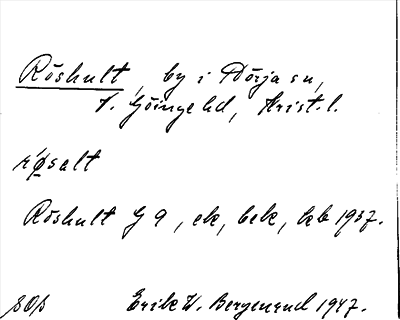 Röshult, by i Dörja sn,
V. Göinge hd, Krist. l.
rǿ̨salt
Röshult G 9, ek, bek, kb 1937.
sos Erik W. Bergenrud 1947.